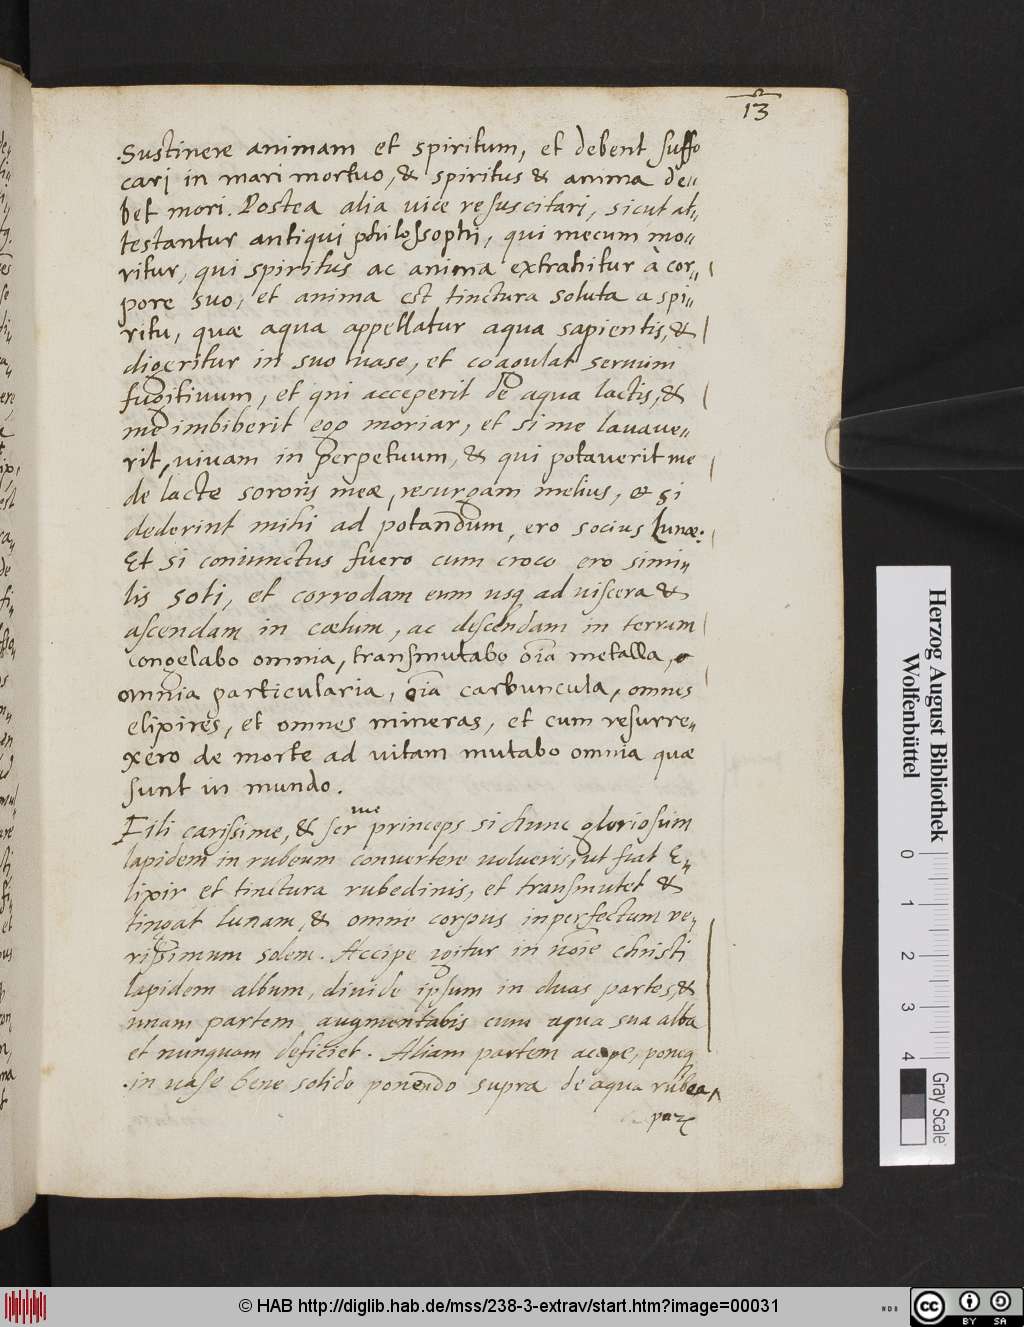 13
Sustinere animam et spiritum, et debent suffo
cari in mari mortuo, & spiritus & anima de„
bet mori. Postea alia vice resuscitari, sicut at„
testantur antiqui philosophi, qui mecum mo„
ritur, qui spiritus ac anima extrahitur à cor„
pore suo, et anima est tinctura soluta a spi„
ritu, quæ aqua appellatur aqua sapientis, &
digeritur in suo vase, et coagulat servum
fugitivum, et qui acceperit de aqua lactis, &
me imbiberit ego moriar, et si me lavave„
rit, vivam in perpetuum, & qui potaverit me
de lacte sororis meæ, resurgam melius, et si
dederint mihi ad potandum, ero socius Lunæ:
Et si coniunctus fuero cum croco ero simi„
lis soli, et corrodam eum usq ad viscera &
ascendam in cœlum, ac descendam in terram
congelabo omnia, transmutabo oīa metalla,
omnia particularia, oīa carbuncula, omnes
elixires, et omnes mineras, et cum resurre„
xero de morte ad vitam mutabo omnia quæ
sunt in mundo.
me
Fili carissime, & ser princeps si hunc gloriosum
lapidem in rubeum convertere volueris, ut fiat E„
lixir et tinctura rubedinis, et transmutet &
tingat lunam, & omne corpus inperfectum ve„
rissimum solem. Accipe igitur in nōie Christi
lapidem album, divide ipsum in duas partes, &
unam partem augmentabis cum aqua sua alba
et nunquam deficiet. Aliam partem accipe, poneq
in vase bene solido ponendo supra de aqua rubea,
par
Herzog August Bibliothek
Wolfenbüttel
0 1 2 3 4
Gray Scale
© HAB http://diglib.hab.de/mss/238-3-extrav/start.htm?image=00031
cc BY SA